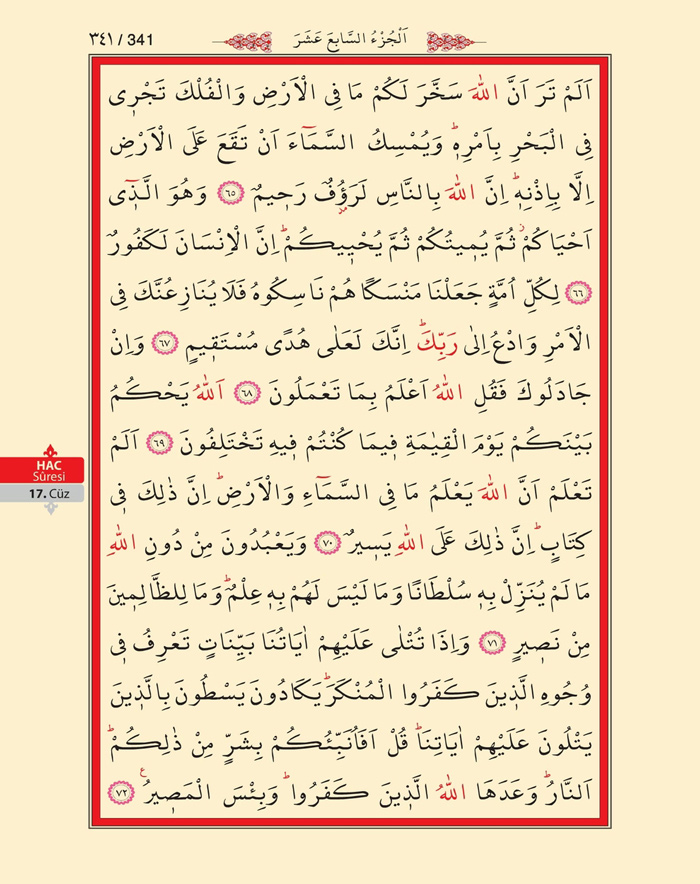 ٣٤١ / 341
اَلْجُزْءُ السَّابِعَ عَشَرَ
اَلَمْ تَرَ اَنَّ اللّٰهَ سَخَّرَ لَكُمْ مَا فِي الْاَرْضِ وَالْفُلْكَ تَجْر۪ي
فِي الْبَحْرِ بِاَمْرِه۪ۜ وَيُمْسِكُ السَّمَٓاءَ اَنْ تَقَعَ عَلَى الْاَرْضِ
اِلَّا بِاِذْنِه۪ۜ اِنَّ اللّٰهَ بِالنَّاسِ لَرَؤُ۫فٌ رَح۪يمٌ ﴿٦٥﴾ وَهُوَ الَّذ۪ٓي
اَحْيَاكُمْۘ ثُمَّ يُم۪يتُكُمْ ثُمَّ يُحْي۪يكُمْۜ اِنَّ الْاِنْسَانَ لَكَفُورٌ
﴿٦٦﴾ لِكُلِّ اُمَّةٍ جَعَلْنَا مَنْسَكًا هُمْ نَاسِكُوهُ فَلَا يُنَازِعُنَّكَ فِي
الْاَمْرِ وَادْعُ اِلٰى رَبِّكَۜ اِنَّكَ لَعَلٰى هُدًى مُسْتَق۪يمٍ ﴿٦٧﴾ وَاِنْ
جَادَلُوكَ فَقُلِ اللّٰهُ اَعْلَمُ بِمَا تَعْمَلُونَ ﴿٦٨﴾ اَللّٰهُ يَحْكُمُ
بَيْنَكُمْ يَوْمَ الْقِيٰمَةِ ف۪يمَا كُنْتُمْ ف۪يهِ تَخْتَلِفُونَ ﴿٦٩﴾ اَلَمْ
تَعْلَمْ اَنَّ اللّٰهَ يَعْلَمُ مَا فِي السَّمَٓاءِ وَالْاَرْضِۜ اِنَّ ذٰلِكَ ف۪ي
كِتَابٍۜ اِنَّ ذٰلِكَ عَلَى اللّٰهِ يَس۪يرٌ ﴿٧٠﴾ وَيَعْبُدُونَ مِنْ دُونِ اللّٰهِ
مَا لَمْ يُنَزِّلْ بِه۪ سُلْطَانًا وَمَا لَيْسَ لَهُمْ بِه۪ عِلْمٌۜ وَمَا لِلظَّالِم۪ينَ
مِنْ نَص۪يرٍ ﴿٧١﴾ وَاِذَا تُتْلٰى عَلَيْهِمْ اٰيَاتُنَا بَيِّنَاتٍ تَعْرِفُ ف۪ي
وُجُوهِ الَّذ۪ينَ كَفَرُوا الْمُنْكَرَۜ يَكَادُونَ يَسْطُونَ بِالَّذ۪ينَ
يَتْلُونَ عَلَيْهِمْ اٰيَاتِنَاۜ قُلْ اَفَاُنَبِّئُكُمْ بِشَرٍّ مِنْ ذٰلِكُمْۜ
اَلنَّارُۜ وَعَدَهَا اللّٰهُ الَّذ۪ينَ كَفَرُواۜ وَبِئْسَ الْمَص۪يرُ۟ ﴿٧٢﴾
HAC
Sûresi
17. Cüz